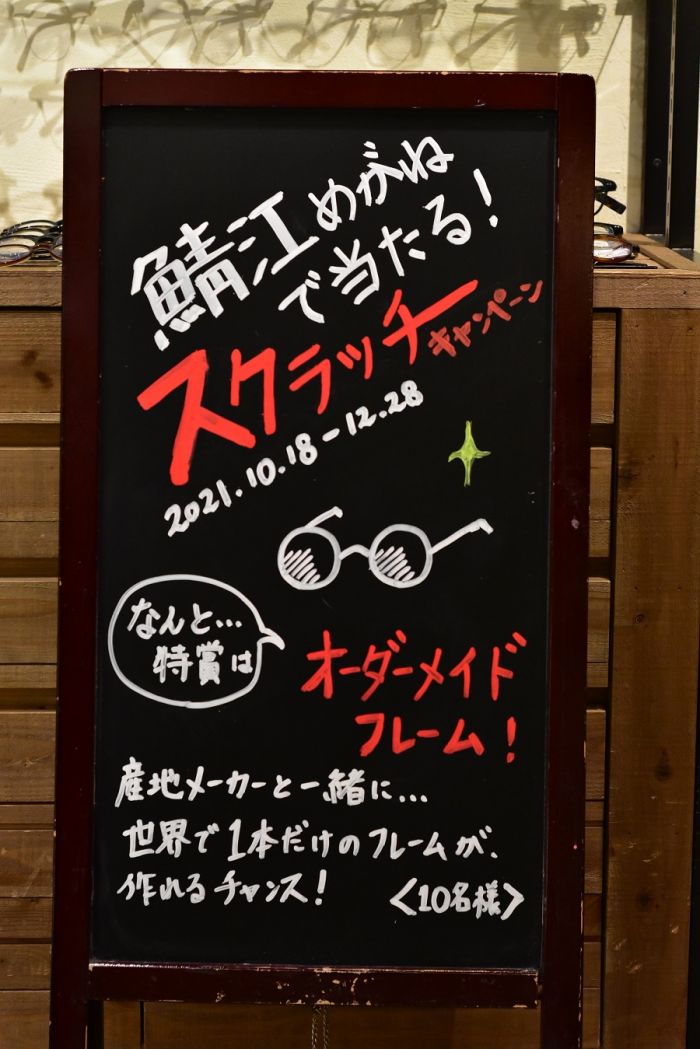 鯖江めがね
で当たる!
スクラッチキャンペーン
2021.10.18-12.28
なんと…
特賞は
オーダーメイド
フレーム!
産地メーカーと一緒に…
世界で1本だけのフレームが、
作れるチャンス!
<10名様>